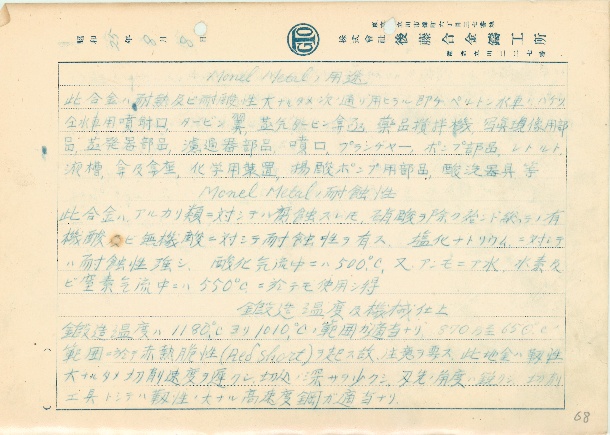 昭和25年8月8日
株式會社 後藤合金鑄工所
Monel Metal ノ用途
此合金ハ耐熱及ビ耐酸性大ナルタメ次ノ通リ用ヒラル即チペルトン水車ノバケツ
全水車用噴射口、タービン翼、蒸気タービン弁、薬品攪拌機、写真現像用部
品、蒸発器部品、濾過器部品、噴口、プランヂャー、ポンプ部品、レトルト
液槽、弁及弁座、化学用装置、揚酸ポンプ用部品、酸洗器具等
Monel Metal ノ耐蝕性
此合金ハ、アルカリ類ニ対シテハ 硝酸ヲ除ク殆ンド総テノ有
機酸及ビ無機酸ニ対シテ耐蝕性ヲ有ス、塩化ナトリウムニ対シテ
ハ耐蝕性強シ、酸化気流中ニハ500℃、又アンモニア水、水素及
ビ窒素気流中ニハ550℃ニ於テモ使用シ得
鍛造温度及機械仕上
鍛造温度ハ1180℃ヨリ1010℃ノ範囲ガ適当ナリ、870乃至650℃ノ
範囲ニ於テ赤熱脆性(Red Short)ヲ起ス故、注意ヲ要ス、此地金ハ靱性
大ナルタメ切削速度ヲ遅クシ、切込ノ深サヲ少クシ、刃先ノ角度ヲ鋭クシ、切削
工具トシテハ靱性ノ大ナル高速度鋼ガ適当ナリ、
68